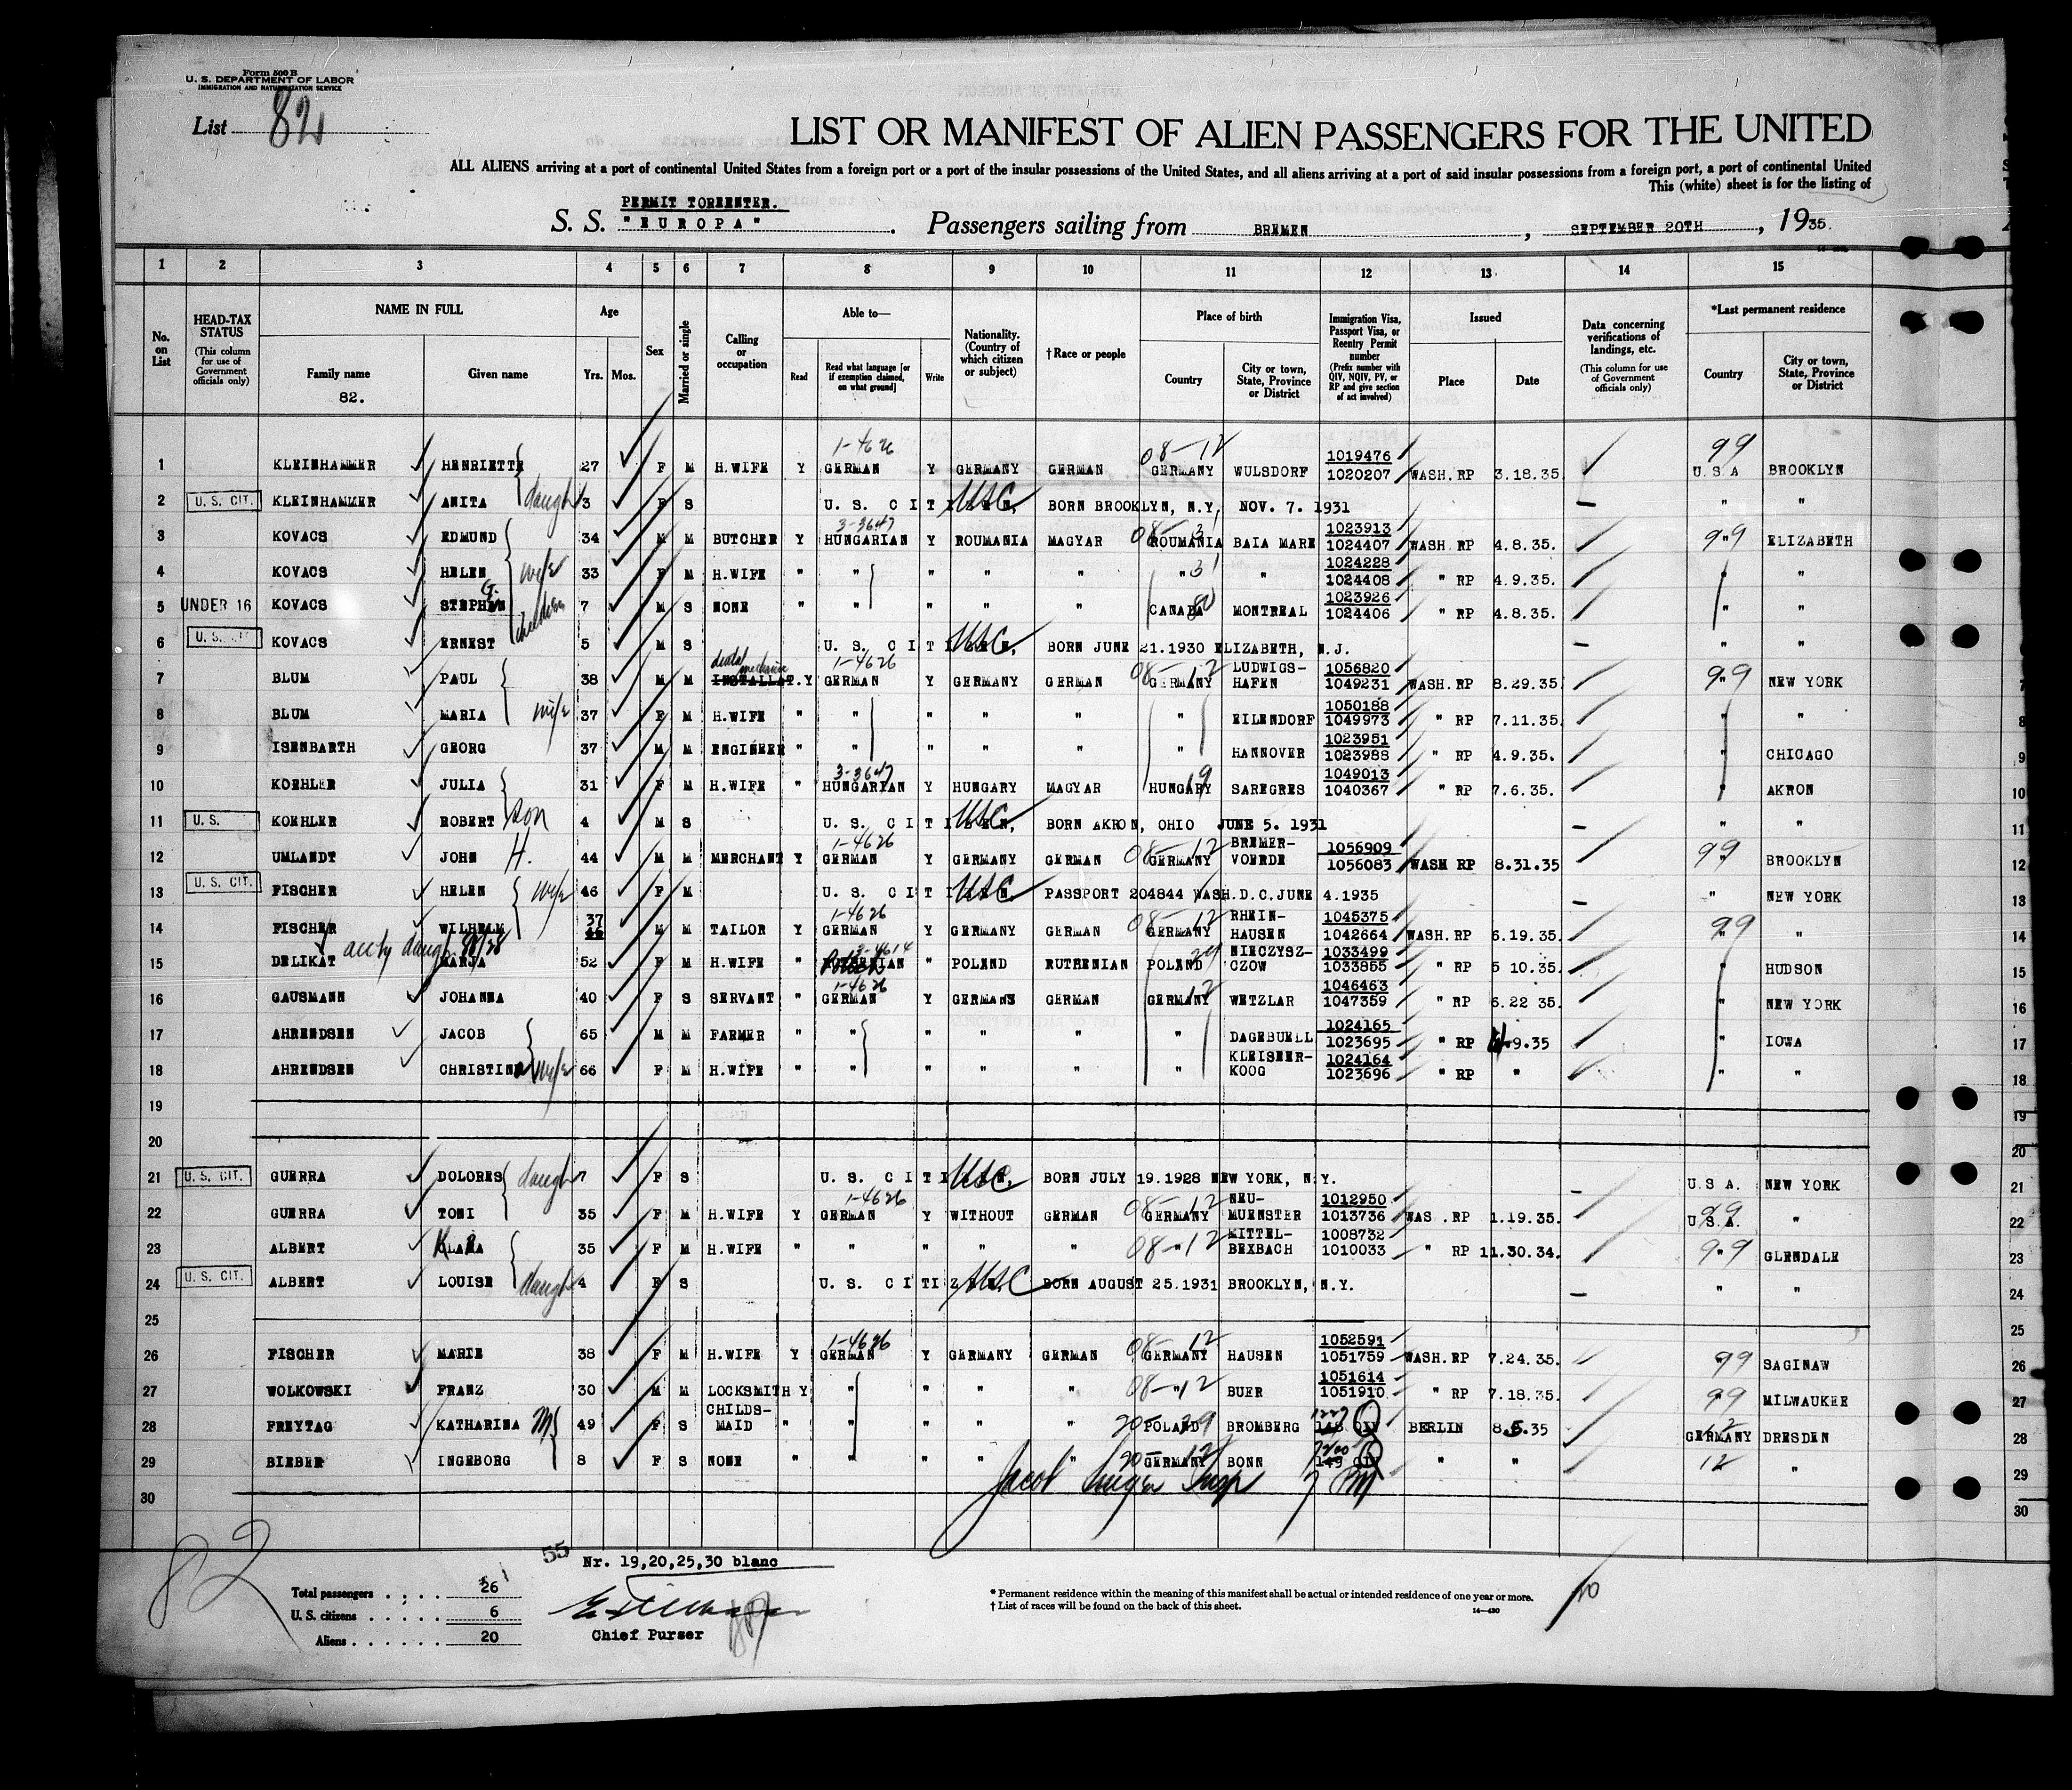 Form 500 B
U. S. DEPARTMENT OF LABOR
IMMIGRATION AND NATURALIZATION SERVICE
List 82
LIST OR MANIFEST OF ALIEN PASSENGERS FOR THE UNITED
ALL ALIENS arriving at a port of continental United States from a foreign port or a port of the insular possessions of the United States, and all aliens arriving at a port of said insular possessions from a foreign port, a port of continental United
This (white) sheet is for the listing of
PERMIT TOREENTER.
S. S. "EUROPA". Passengers sailing from BREMEN, SEPTEMBER 20TH, 1935.
1 2 3 4 5 6 7 8 9 10 11 12 13 14 15
No. on List
HEAD-TAX STATUS (This column for use of Government officials only)
NAME IN FULL Family name Given name
82.
Age Yrs. Mos.
Sex
Married or single
Calling or occupation
Able to— Read Read what language [or if exemption claimed, on what ground] Write
Nationality. (Country of which citizen or subject)
†Race or people
Place of birth Country City or town, State, Province or District
Immigration Visa, Passport Visa, or Reentry Permit number (Prefix number with QIV, NQIV, PV, or RP and give section of act involved)
Issued Place Date
Data concerning verifications of landings, etc. (This column for use of Government officials only)
*Last permanent residence Country City or town, State, Province or District
1-4626 08-12 99
1 KLEINHAMMER HENRIETTE 27 F M H.WIFE Y GERMAN Y GERMANY GERMAN GERMANY WULSDORF 1019476 1020207 WASH.RP 3.18.35. U.S.A BROOKLYN
2 U. S. CIT. KLEINHAMMER ANITA daught 3 F S U.S. CITIZEN, USC BORN BROOKLYN, N.Y, NOV. 7. 1931 " "
3-3647
3 KOVACS EDMUND 34 M M BUTCHER Y HUNGARIAN Y ROUMANIA MAGYAR 08-31 ROUMANIA BAIA MARE 1023913 1024407 WASH RP 4.8.35. 99 " ELIZABETH
4 KOVACS HELEN wife 33 F M H.WIFE " " " " " " 31 " 1024228 1024408 " RP 4.9.35. " "
5 UNDER 16 KOVACS STEPHEN G. children 7 M S NONE " " " " " CANADA MONTREAL 1023926 1024406 " RP 4.8.35. " "
6 U. S. CIT KOVACS ERNEST 5 M S U.S. CITIZEN, USC BORN JUNE 21.1930 ELIZABETH, N.J. " "
dental mechanic 1-4626
7 BLUM PAUL 38 M M INSTALLAT. Y GERMAN Y GERMANY GERMAN 08-12 GERMANY LUDWIGS-HAFEN 1056820 1049231 WASH.RP 8.29.35. 99 " NEW YORK
8 BLUM MARIA wife 37 F M H.WIFE " " " " " " EILENDORF 1050188 1049973 " RP 7.11.35. " "
9 ISENBARTH GEORG 37 M M ENGINEER " " " " " " HANNOVER 1023951 1023988 " RP 4.9.35. " CHICAGO
3-3647
10 KOEHLER JULIA 31 F M H.WIFE " HUNGARIAN Y HUNGARY MAGYAR HUNGARY 19 SAREGRES 1049013 1040367 " RP 7.6.35. " AKRON
11 U. S. KOEHLER ROBERT son 4 M S U.S. CITIZEN, USC BORN AKRON, OHIO JUNE 5. 1931 " "
1-4626
12 UMLANDT JOHN H. 44 M M MERCHANT Y GERMAN Y GERMANY GERMAN 08-12 GERMANY BREMER-VOERDE 1056909 1056083 WASH RP 8.31.35 99 " BROOKLYN
13 U. S. CIT. FISCHER HELEN wife 46 F M U.S. CITIZEN USC PASSPORT 204844 WASH.D.C.JUNE 4.1935 " NEW YORK
1-4626
14 FISCHER WILHELM 37 M M TAILOR Y GERMAN Y GERMANY GERMAN 08-12 GERMANY RHEIN-HAUSEN 1045375 1042664 WASH.RP 6.19.35. 99 " "
3-4614
15 DELIKAT MARJA 52 F M H.WIFE " " POLAND RUTHENIAN POLAND 29 NIECZYSZ-CZOW 1033499 1033855 " RP 5 10.35. " HUDSON
1-4626
16 GAUSMANN JOHANNA 40 F S SERVANT " GERMAN Y GERMANS GERMAN GERMANY 12 WETZLAR 1046463 1047359 " RP 6.22 35. " NEW YORK
17 AHRENDSEN JACOB 65 M M FARMER " " " " " " DAGEBUELL 1024165 1023695 " RP 4.9.35 " IOWA
18 AHRENDSEN CHRISTINA wife 66 F M H.WIFE " " " " " " KLEISEER-KOOG 1024164 1023696 " RP " " "
19
20
21 U. S. CIT. GUERRA DOLORES daught 7 F S U.S. CITIZEN, USC BORN JULY 19.1928 NEW YORK, N.Y. U.S.A. NEW YORK
1-4626
22 GUERRA TONI 35 F M H.WIFE Y GERMAN Y WITHOUT GERMAN 08-12 GERMANY NEU-MUENSTER 1012950 1013736 WAS .RP 1.19.35. 99 U.S.A. "
23 ALBERT KLARA 35 F M H.WIFE " " " " " 08-12 " MITTEL-BEXBACH 1008732 1010033 " RP 11.30.34. 99 " GLENDALE
24 U. S. CIT. ALBERT LOUISE daught 4 F S U.S. CITIZEN. USC BORN AUGUST 25.1931 BROOKLYN, N.Y. " "
25
1-4626
26 FISCHER MARIE 38 F M H.WIFE Y GERMAN Y GERMANY GERMAN 08-12 GERMANY HAUSEN 1052591 1051759 WASH.RP 7.24.35. 99 " SAGINAW
27 WOLKOWSKI FRANZ 30 M M LOCKSMITH Y " " " " 08-12 " BUER 1051614 1051910 " RP 7.18.35. 99 MILWAUKEE
28 FREYTAG KATHARINA M 49 F S CHILDS-MAID " " " " " 20-29 POLAND BROMBERG 1227 148 QIV BERLIN 8.5.35 12 GERMANY DRESDEN
29 BIEBER INGEBORG 8 F S NONE " " " " " 20-12 GERMANY BONN 1200 149 QIV " " 12 "
30
82
55
Nr. 19,20,25,30 blanc
Total passengers . . . . 26
U. S. citizens . . . . . 6
Aliens . . . . . . 20
Chief Purser
* Permanent residence within the meaning of this manifest shall be actual or intended residence of one year or more.
† List of races will be found on the back of this sheet.
14—430
10